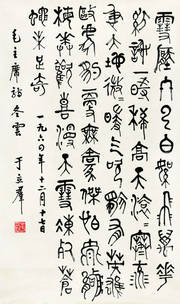 雪壓冬雲白絮飛萬花
紛謝一時稀高天滾〻寒流
急大地微〻暖氣吹獨有英雄
驅虎豹更無豪傑怕熊
羆梅花歡喜漫天雪凍死蒼
蠅未足奇
一九六年十二月十七日
毛主席詩冬雲 于立群